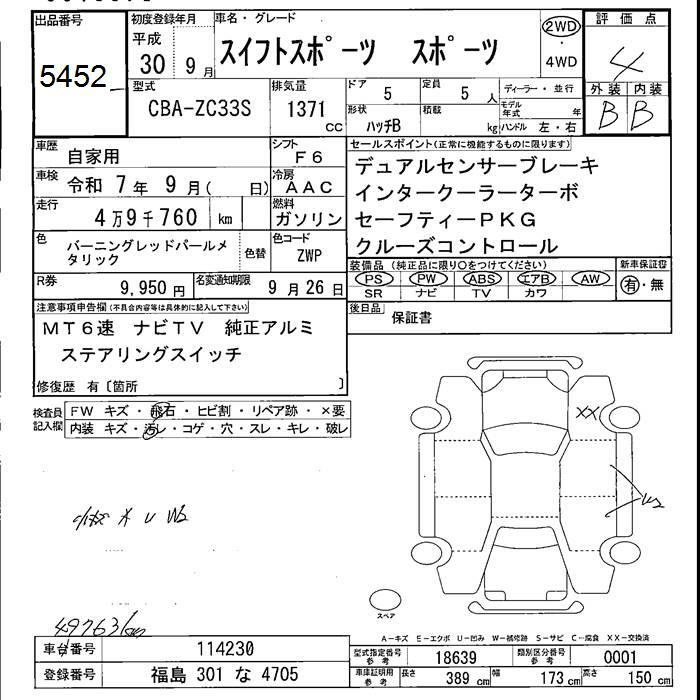 出品番号
5452
初度登録年月
平成
30 9 月
車名・グレード
スイフトスポーツ スポーツ
2WD
・
4WD
評価点
4
外装 内装
B B
型式
CBA-ZC33S
排気量
1371
cc
ドア 5
定員 5 人
形状 ハッチB
積載 kg
ディーラー・並行
モデル年式 年
ハンドル 左・右
車歴 自家用
シフト F6
車検 令和 7 年 9 月( 日)
冷房 AAC
走行 4万9千760 km
燃料 ガソリン
色 バーニングレッドパールメタリック
色替
色コード ZWP
R券 9,950 円
名変通知期限 9 月 26 日
セールスポイント(正常に機能するものに限ります)
デュアルセンサーブレーキ
インタークーラーターボ
セーフティーPKG
クルーズコントロール
装備品(純正品に限り○をつけてください)
PS PW ABS エアB AW
SR ナビ TV カワ
新車保証書
有・無
後日品 保証書
注意事項申告欄(不具合内容等は具体的に記入して下さい)
MT6速 ナビTV 純正アルミ
ステアリングスイッチ
修復歴 有〔箇所 〕
検査員記入欄
FW キズ・飛石・ヒビ割・リペア跡・×要
内装 キズ・汚レ・コゲ・穴・スレ・キレ・破レ
XX
スペア
49763km
A-キズ E-エクボ U-凹み W-補修跡 S-サビ C-腐食 XX-交換済
車台番号 114230
登録番号 福島 301 な 4705
型式指定番号 参考 18639
類別区分番号 参考 0001
車庫証明用 参考 長さ 389 cm 幅 173 cm 高さ 150 cm